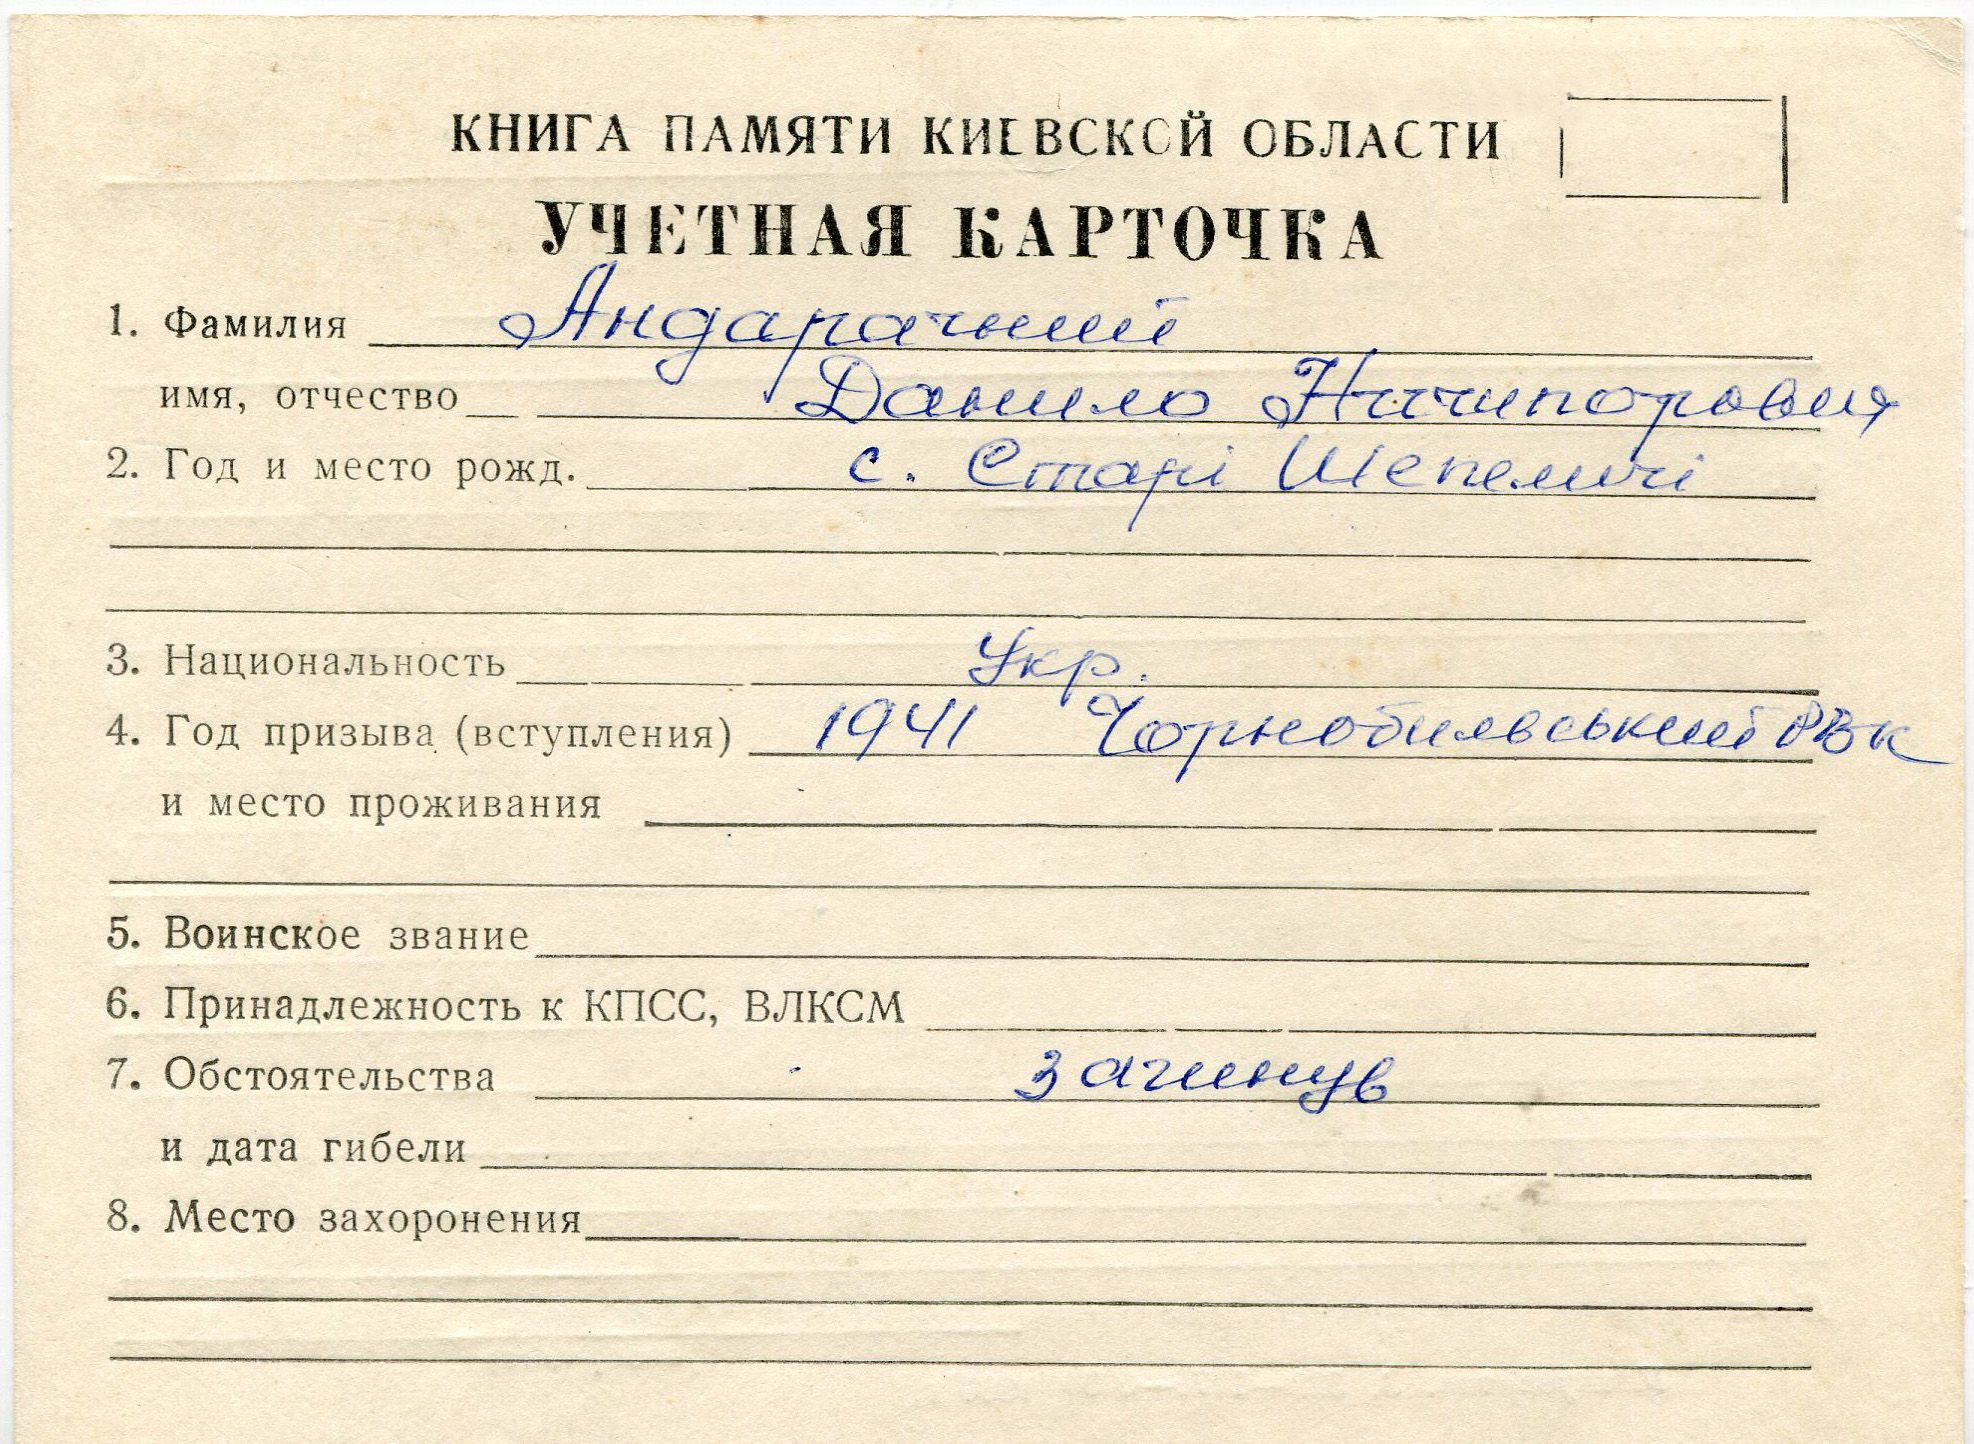 КНИГА ПАМЯТИ КИЕВСКОЙ ОБЛАСТИ
УЧЕТНАЯ КАРТОЧКА
1. Фамилия Андарачний
имя, отчество Данило Ничипорович
2. Год и место рожд. с. Старі Шепеличі
3. Национальность Укр.
4. Год призыва (вступления) 1941 Чорнобилвський РВк
и место проживания
5. Воинское звание
6. Принадлежность к КПСС, ВЛКСМ
7. Обстоятельства загинув
и дата гибели
8. Место захоронения